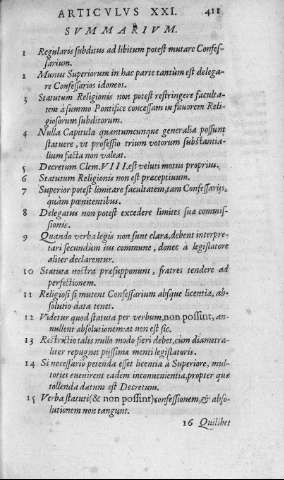 ARTICVLVS XXI. 411
SVMMARIVM.
1 Regularis subditus ad libitum potest mutare Confes-
sarium.
2 Munus Superiorum in hac parte tantùm est delega-
re Confessarios idoneos.
3 Statutum Religionis non potest restringere faculta-
tem à summo Pontifice concessam in fauorem Reli-
giosorum subditorum.
4 Nulla Capitula quantumcunque generalia possunt
statuere, vt professio trium votorum substantia-
lium facta non valeat.
5 Decretum Clem. VIII. est velut motus proprius.
6 Statutum Religionis non est præceptiuum.
7 Superior potest limitare facultatem, tam Confessarijs,
quàm pœnitentibus.
8 Delegatus non potest excedere limites suæ commis-
sionis.
9 Quando verba legis non sunt clara, debent interpre-
tari secundùm ius commune, donec à legislatore
aliter declarentur.
10 Statuta nostra præsupponunt, fratres tendere ad
perfectionem.
11 Religiosi si mutent Confessarium absque licentia, ab-
solutio data tenet.
12 Videtur quod statuta per verbum, non possint, an-
nullent absolutionem: at non est sic.
13 Restrictio talis nullo modo fieri debet, cùm diametra-
liter repugnet pijssimæ menti legislatoris.
14 Si necessariò petenda esset licentia à Superiore, mul-
toties euenirent eadem inconuenientia, propter quæ
tollenda datum est Decretum.
15 Verba statuti (& non possint) confessionem, & abso-
lutionem non tangunt.
16 Quilibet